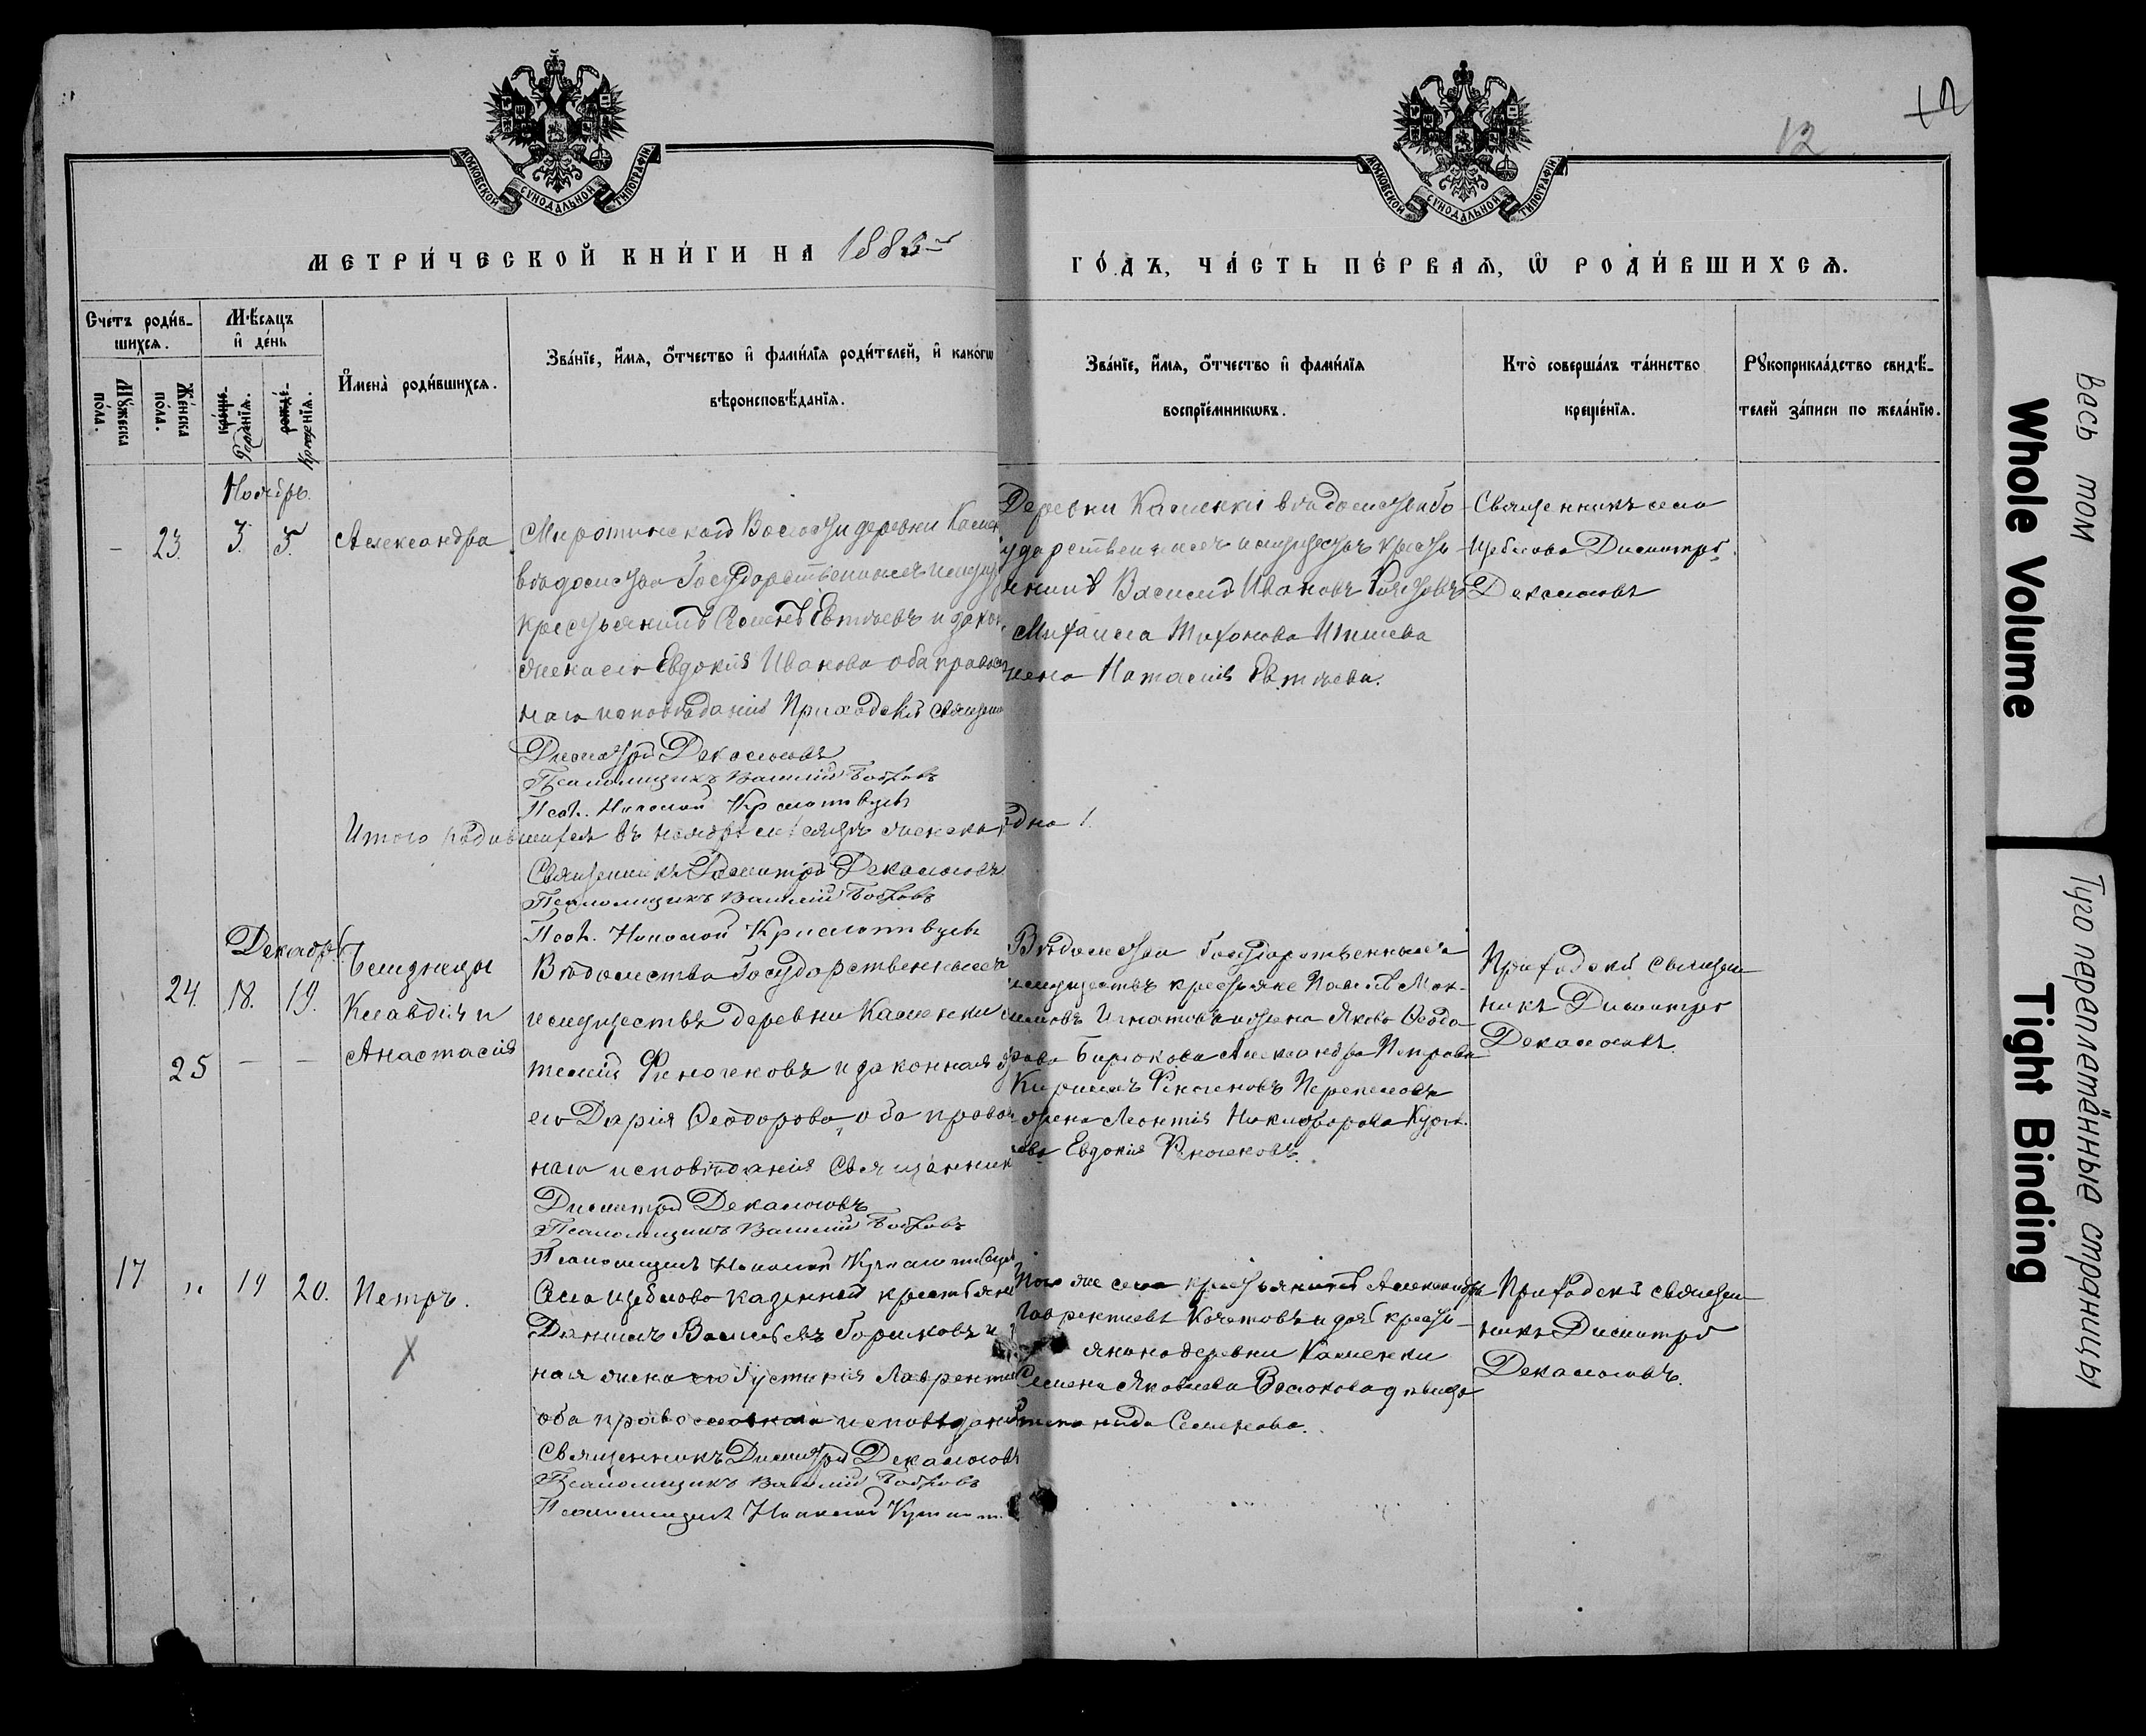 МОСКОВСКОЙ СѴНОДАЛЬНОЙ ТИПОГРАФІИ.
МОСКОВСКОЙ СѴНОДАЛЬНОЙ ТИПОГРАФІИ.
12
МЕТРИ́ЧЕСКОЙ КНИ́ГИ НА 1883
ГО́ДЪ, ЧА́СТЬ ПЕ́РВАЯ, Ѿ РОДИ́ВШИХСЯ.
Счетъ роди́в-
шихся.
Мѣсяцъ
и де́нь
Му́жеска
по́ла.
Же́нска
по́ла.
рожденія.
крещенія.
Имена̀ роди́вшихся.
Зва́нїе, и́мя, о́тчество и фами́лїя роди́телей, и како́гѡ
вѣроисповѣ́данїя.
Зва́нїе, и́мя, о́тчество и фами́лїя
воспрїе́мникѡвъ.
Кто̀ соверша́лъ та́инство
креще́нїя.
Рꙋкоприкла́дство свидѣ́-
телей за́писи по жела́нїю.
Ноябрь.
- 23. 3. 5. Александра
Миротинской Волости деревни Камен
вѣдомства Государственныхъ имущ
крестьянинъ Евтѣевъ и закон
жена его Евдокія Иванова оба правос
наго исповѣданія Приходскій священ
Димитрій Декамоновъ
Псаломщикъ Василій Бобровъ
Деревни Каменки вѣдомства Го
ударственныхъ имуществъ кресть
янинъ Василій Ивановъ
Михаила Тихонова
жена Наталія Евтѣева.
Священникъ села
Щеблова Димитрій
Декамоновъ
Итого родившихся въ ноябрѣ мѣсяцѣ женска одна 1.
Священникъ Димитрій Декамоновъ
Псаломщикъ Василій Бобровъ
Декабрь
24. 18. 19.
25 - -
Близнецы
Клавдія и
Анастасія
Вѣдомства Государственныхъ
имуществъ деревни Каменки
Финогеновъ и законная
его Дарія Ѳеодорова, оба правос
наго исповѣданія Священник
Димитрій Декамоновъ
Псаломщикъ Василій Бобровъ
Вѣдомства Государственныхъ
имуществъ крестьяне Павелъ Мак-
симовъ Игнатовъ и жена Якова Ѳеодо
рова Бирюкова Александра Петрова
Кириллъ Финогеновъ Перепеловъ
жена Леонтія Никифорова
Евдокія Финогеновъ.
Приходскій священ
никъ Димитрій
Декамоновъ.
17 " 19 20. Петръ.
Села Щеблова казенный крестьяни
Даніилъ Васильевъ Горшковъ и
ная жена его Іустинія Лаврентье
оба православнаго исповѣданія
Священникъ Димитрій Декамоновъ
Псаломщикъ Василій Бобровъ
Того же села крестьянинъ Александръ
Лаврентьевъ Кочетовъ и дочь кресть
янина деревни Каменки
Семена Яковлева девица
Степанида Семенова.
Приходскій священ
никъ Димитрій
Декамоновъ.
весь том
Whole Volume
Туго переплетённые страницы
Tight Binding